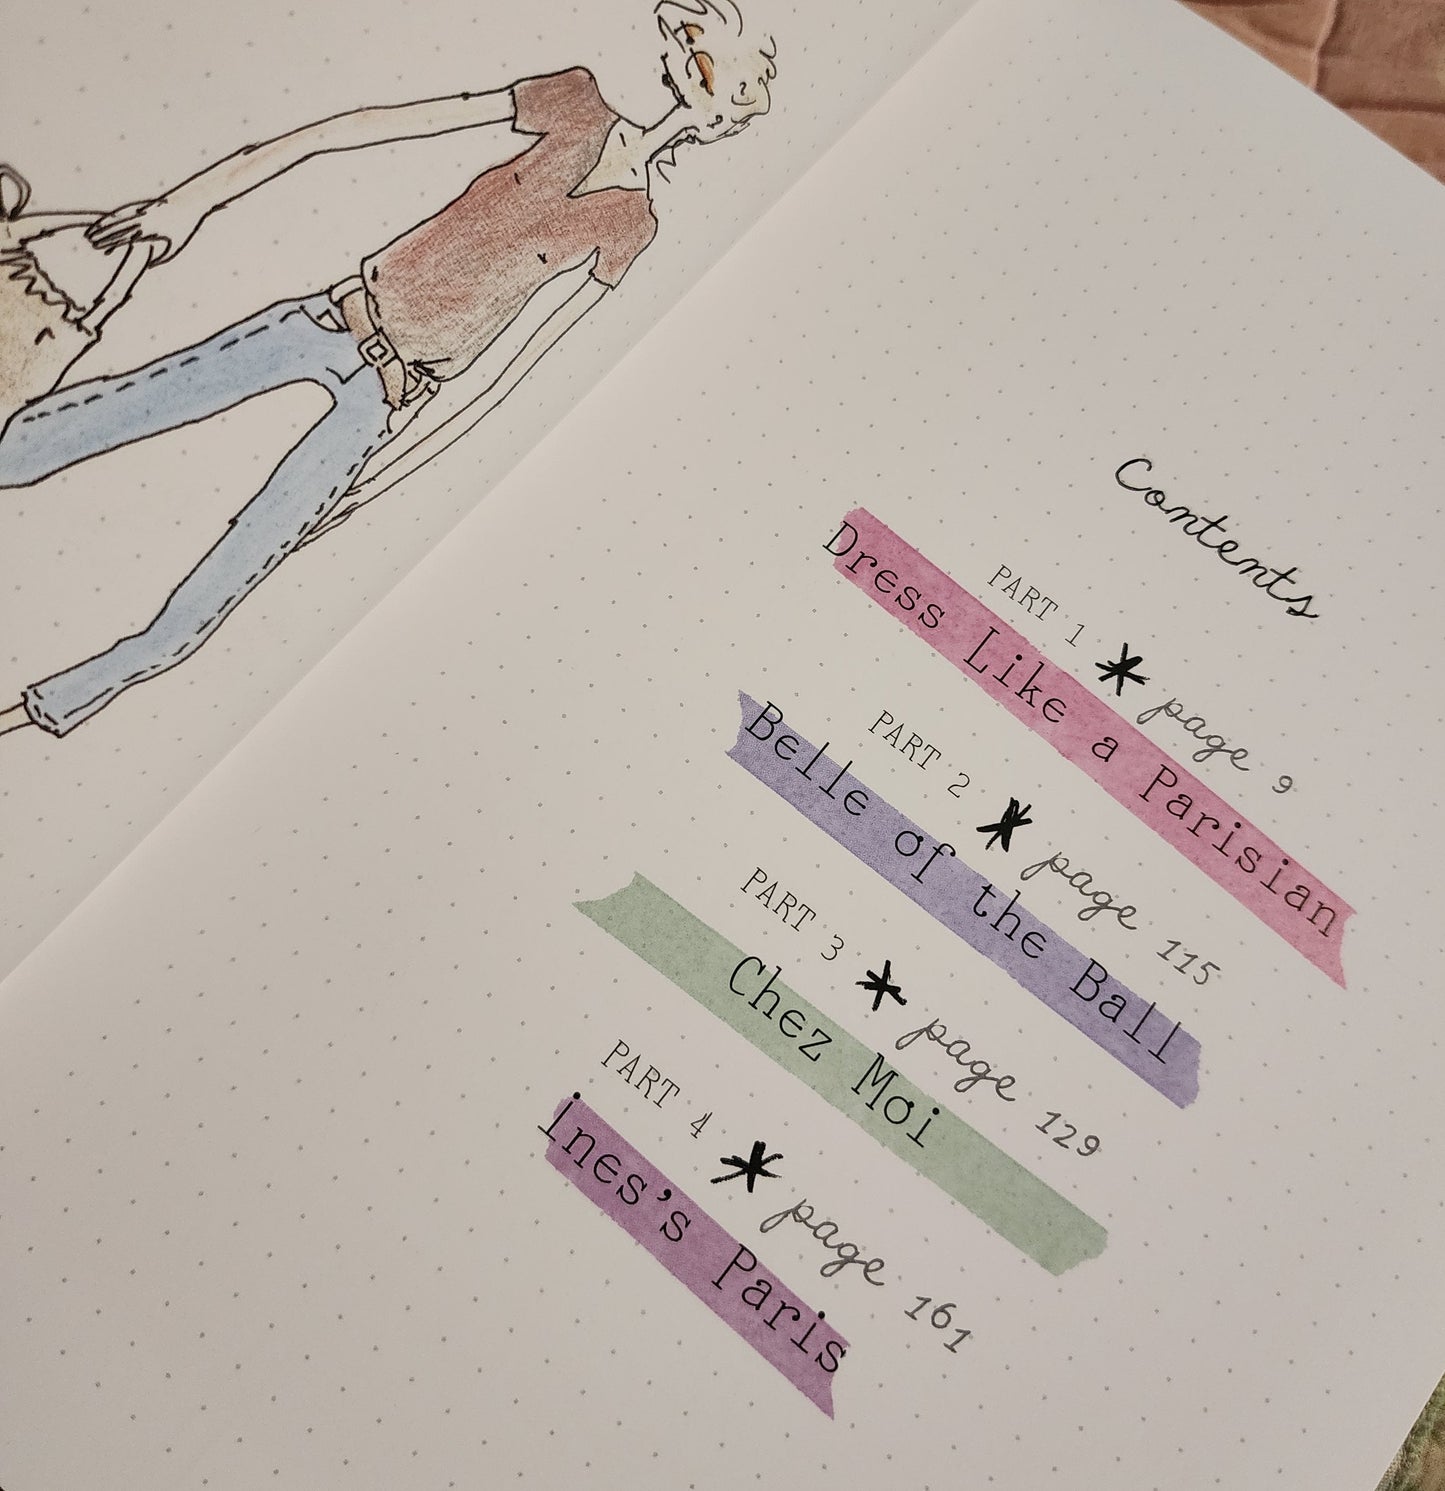 Contents
PART 1 * page 9
Dress Like a Parisian
PART 2 * page 115
Belle of the Ball
PART 3 * page 129
Chez Moi
PART 4 * page 161
ines's Paris